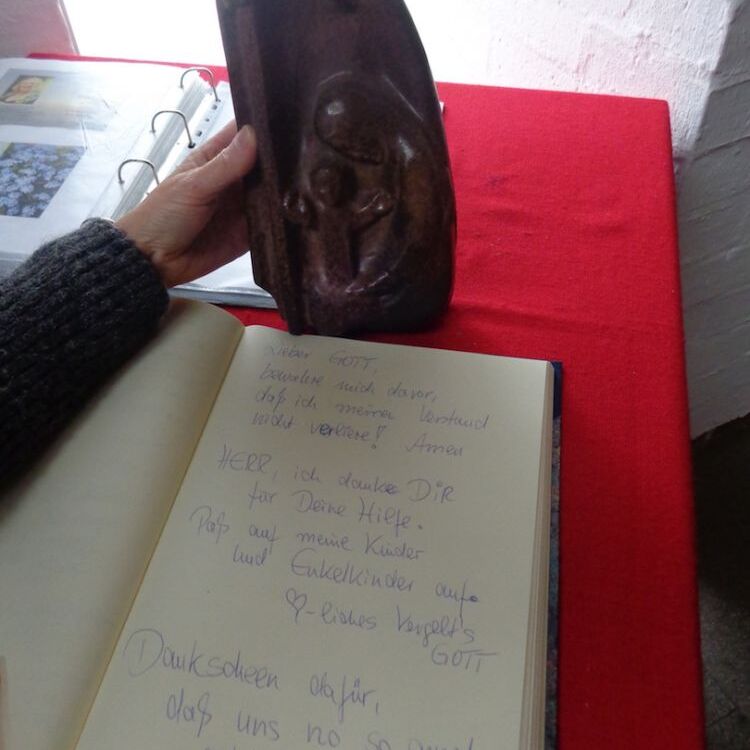 Lieber GOTT,
bewahre mich davor,
daß ich meinen Verstand
nicht verliere! Amen
HERR, ich danke DiR
für Deine Hilfe.
Paß auf meine Kinder
und Enkelkinder auf.
♡-liches Vergelt's
GOTT
Dankscheen dafür,
daß uns no so